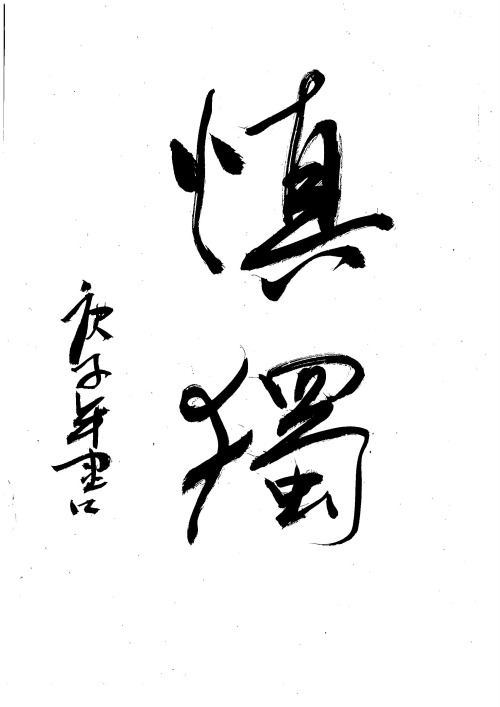 慎獨
庚子年書